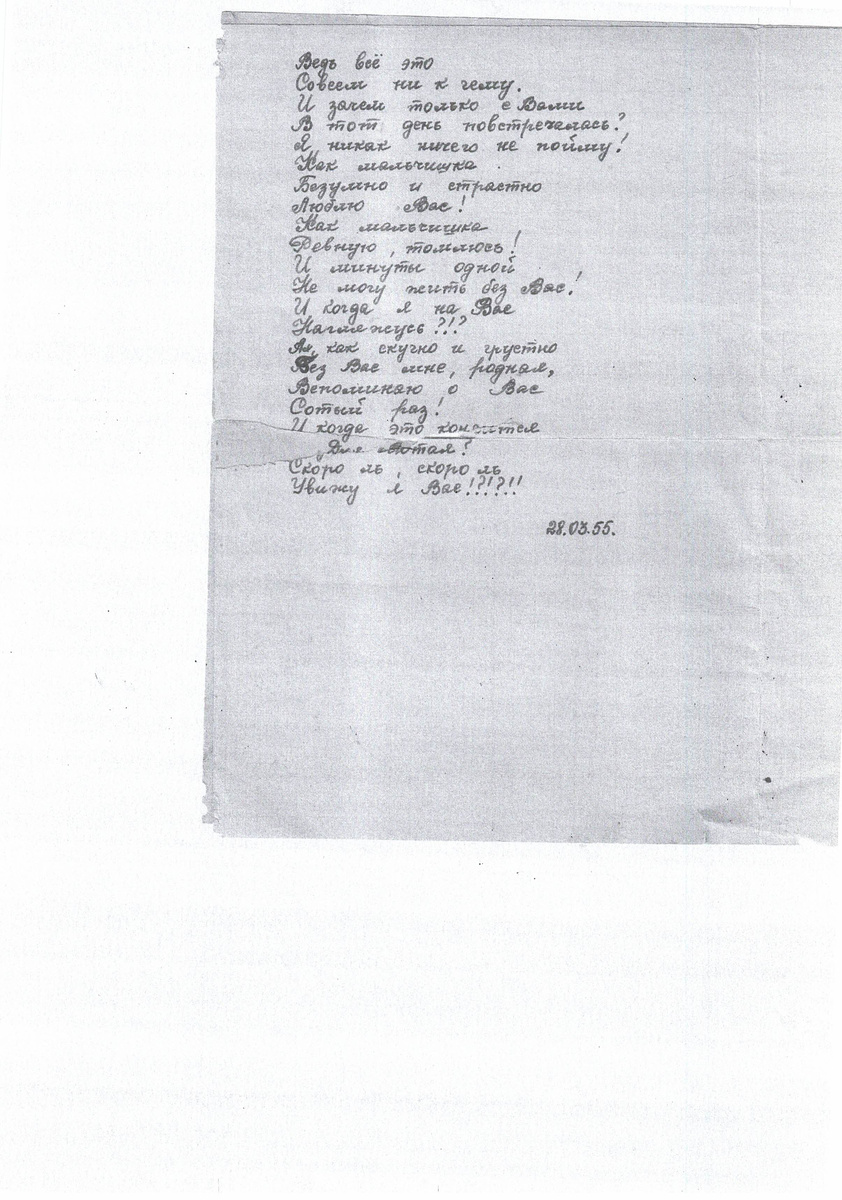 Ведь всё это
Совсем ни к чему.
И зачем только с Вами
В тот день повстречалась?
Я никак ничего не пойму!
Как мальчишка
Безумно и страстно
Люблю Вас!
Как мальчишка
Ревную, томлюсь!
И минуты одной
Не могу жить без Вас!
И когда я на Вас
Нагляжусь?!?
Ах, как скучно и грустно
Без Вас мне, родная,
Вспоминаю о Вас
Сотый раз!
И когда это кончится
Скоро ль, скоро ль
Увижу я Вас!?!?!!
28.03.55.